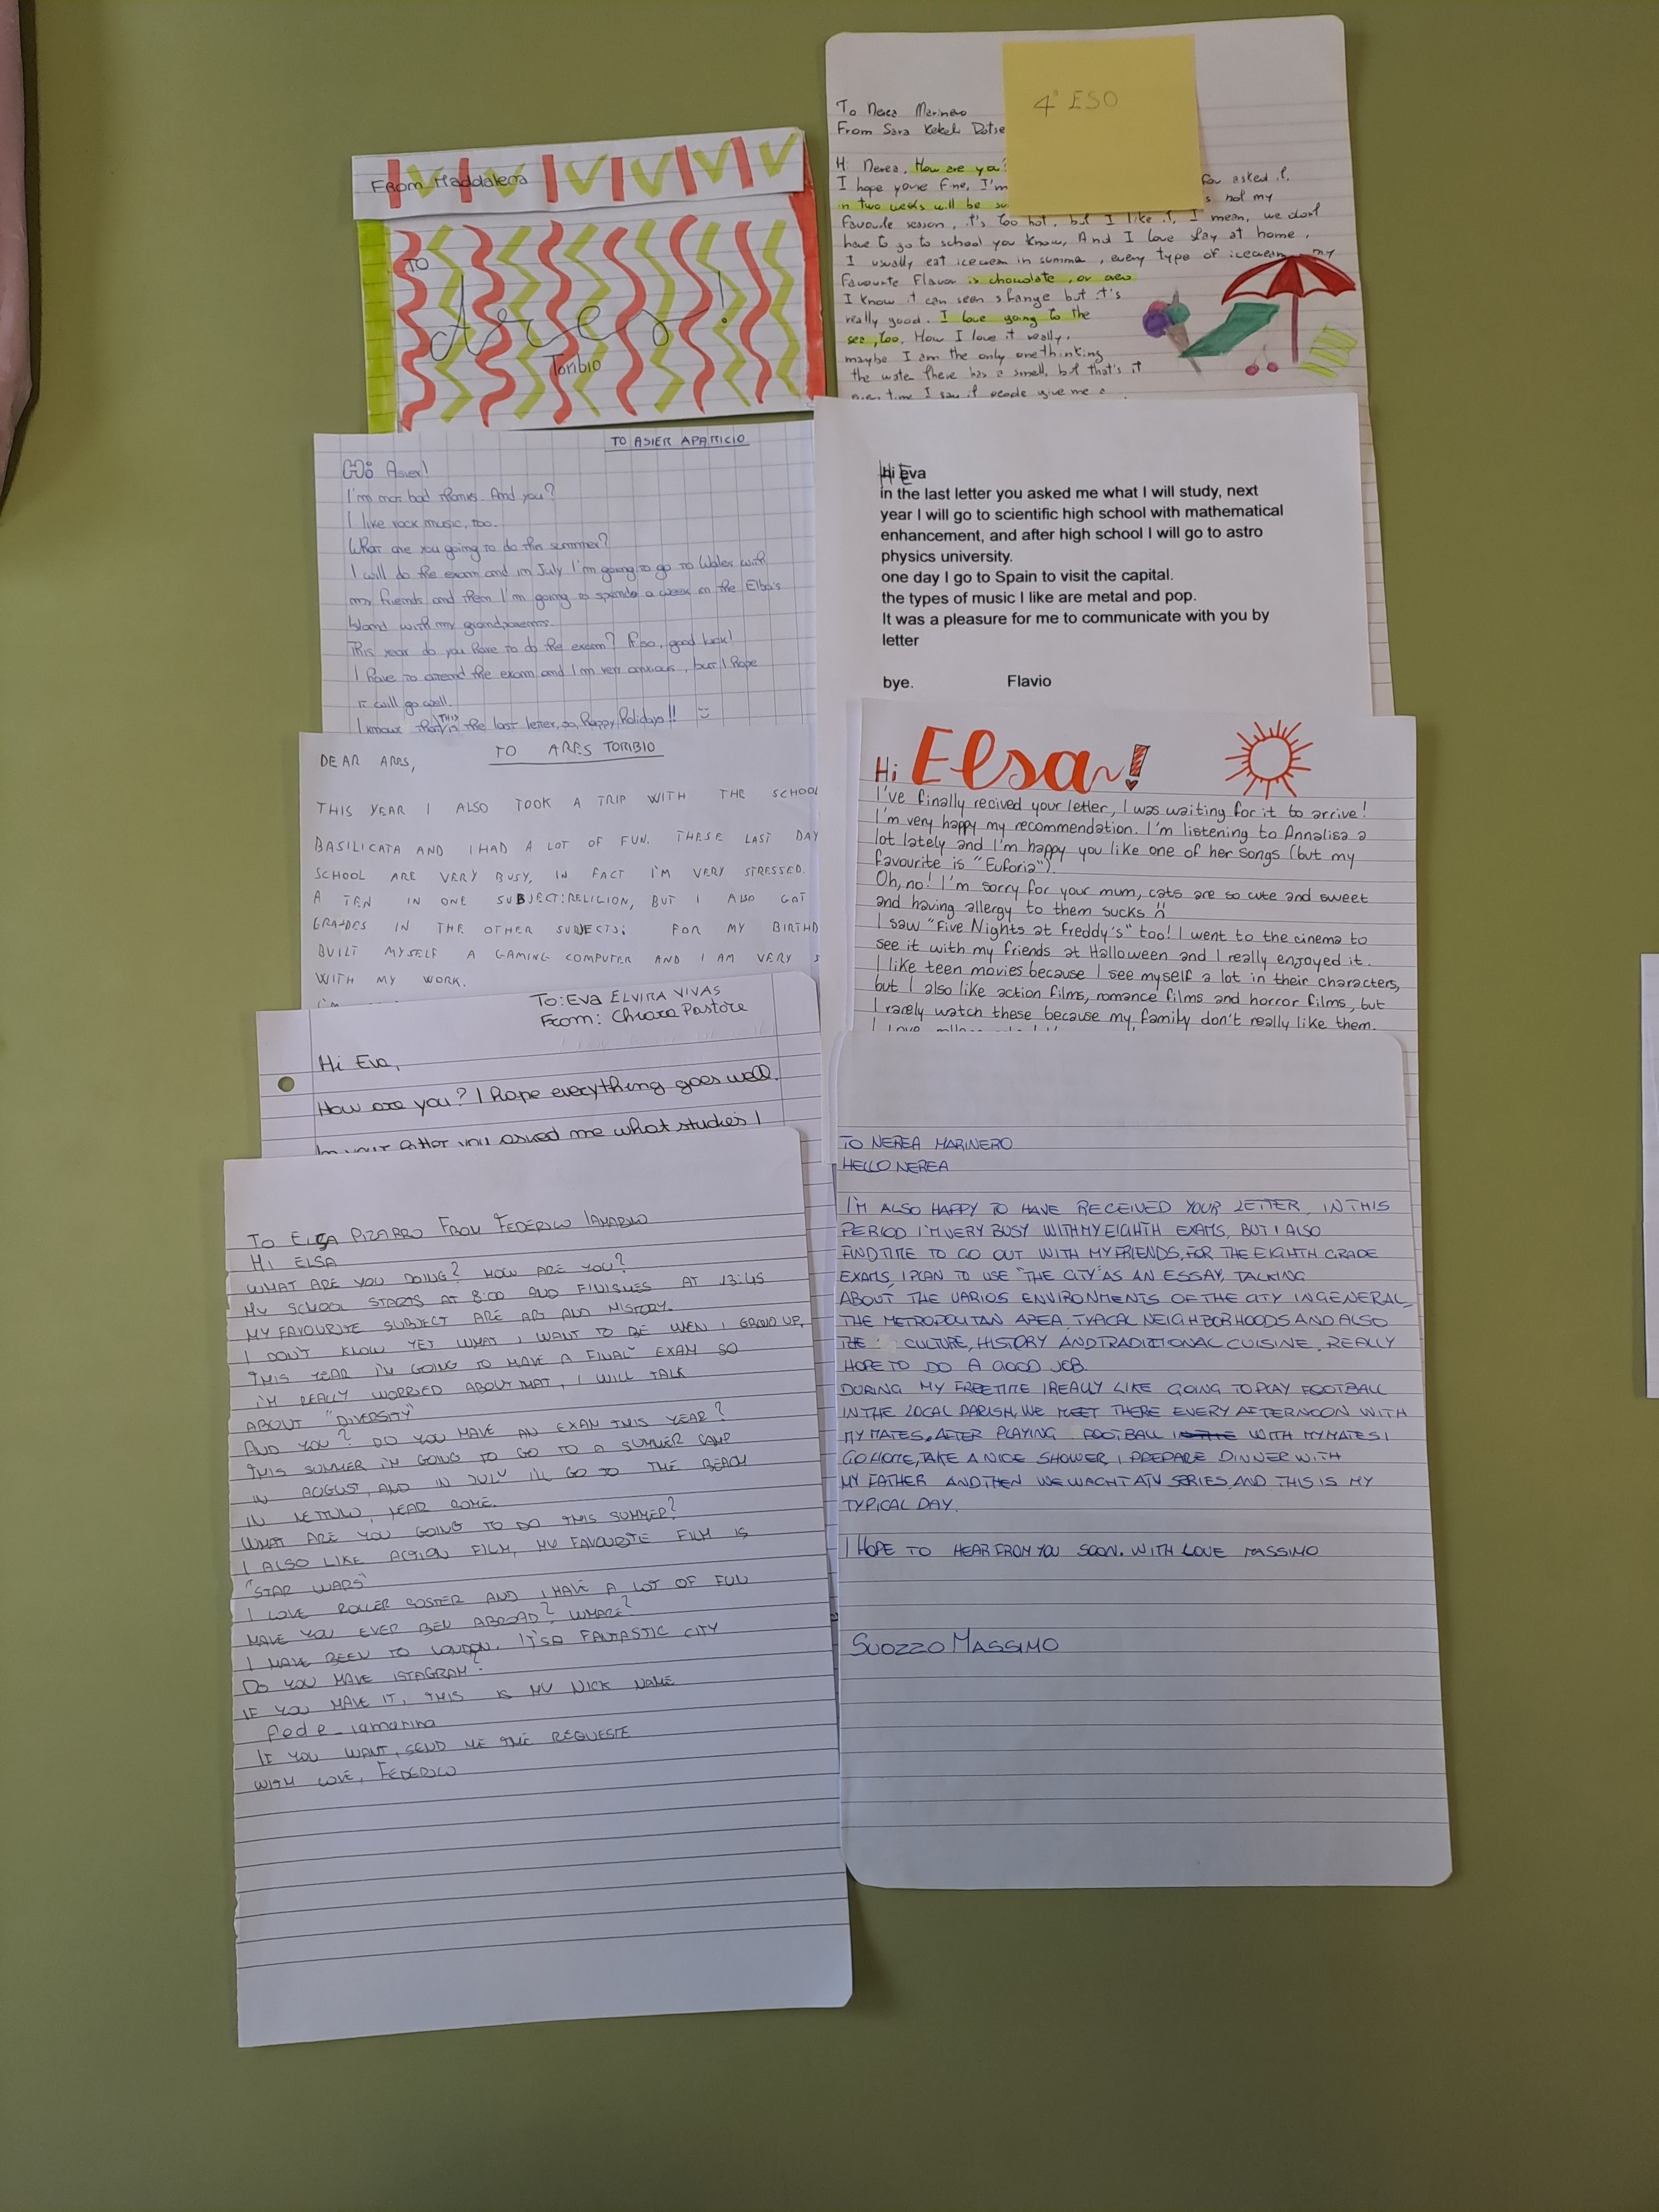 From Maddalena
TO
Ares!
Toribio
4º ESO
To Nerea Marinero
From Sara Kekeli Dotse
Hi Nerea, How are you?
I hope youre fine, I'm for asked it.
in two weeks will be su s not my
favourite season, it's too hot, but I like it, I mean, we don't
have to go to school you know, And I love stay at home,
I usually eat icecream in summer, every type of icecream my
favourite flavor is chocolate, or
I know it can seen strange but it's
really good. I love going to the
sea, too. How I love it really,
maybe I am the only one thinking
the water there has a smell, but that's it
every time I say it people give me a
TO ASIER APARICIO
Hi Asier!
I'm not bad thanks. And you?
I like rock music, too.
What are you going to do this summer?
I will do the exam and in July I'm going to go to Wales with
my friends and then I'm going to spende a week on the Elba's
Island with my grandparents.
This year do you have to do the exam? If so, good luck!
I have to attend the exam and I'm very anxious, but I hope
it will go well.
I know that THIS is the last letter, so, happy holidays!! :)
Hi Eva
in the last letter you asked me what I will study, next
year I will go to scientific high school with mathematical
enhancement, and after high school I will go to astro
physics university.
one day I go to Spain to visit the capital.
the types of music I like are metal and pop.
It was a pleasure for me to communicate with you by
letter
bye. Flavio
TO ARES TORIBIO
DEAR ARES,
THIS YEAR I ALSO TOOK A TRIP WITH THE SCHOOL
BASILICATA AND I HAD A LOT OF FUN. THESE LAST DAY
SCHOOL ARE VERY BUSY, IN FACT I'M VERY STRESSED.
A TEN IN ONE SUBJECT:RELIGION, BUT I ALSO GOT
GRADES IN THE OTHER SUBJECTS; FOR MY BIRTHD
BUILT MYSELF A GAMING COMPUTER AND I AM VERY S
WITH MY WORK.
I'm
Hi Elsa!
I've finally recived your letter, I was waiting for it to arrive!
I'm very happy my recommendation. I'm listening to Annalisa a
lot lately and I'm happy you like one of her songs (but my
favourite is "Euforia").
Oh, no! I'm sorry for your mum, cats are so cute and sweet
and having allergy to them sucks
I saw "Five Nights at Freddy's" too! I went to the cinema to
see it with my friends at Halloween and I really enjoyed it.
I like teen movies because I see myself a lot in their characters,
but I also like action films, romance films and horror films, but
I rarely watch these because my family don't really like them.
I love
To: Eva ELVIRA VIVAS
From: Chiara Pastore
Hi Eva,
How are you? I hope everything goes well.
In your letter you asked me what studies I
TO ELSA PIZARRO FROM FEDERICO IAMARINO
HI ELSA
WHAT ARE YOU DOING? HOW ARE YOU?
MY SCHOOL STARTS AT 8:00 AND FINISHES AT 13:45
MY FAVOURITE SUBJECT ARE ART AND HISTORY.
I DON'T KNOW YET WHAT I WANT TO BE WEN I GROW UP,
THIS YEAR I'M GOING TO MAKE A FINAL EXAM SO
I'M REALLY WORRIED ABOUT THAT, I WILL TALK
ABOUT "DIVERSITY"
AND YOU? DO YOU HAVE AN EXAM THIS YEAR?
THIS SUMMER I'M GOING TO GO TO A SUMMER CAMP
IN AUGUST, AND IN JULY I'LL GO TO THE BEACH
IN NETTUNO, NEAR ROME.
WHAT ARE YOU GOING TO DO THIS SUMMER?
I ALSO LIKE ACTION FILM, MY FAVOURITE FILM IS
"STAR WARS"
I LOVE ROLLER COSTER AND I HAVE A LOT OF FUN
HAVE YOU EVER BEN ABROAD? WHARE?
I HAVE BEEN TO LONDON. IT'S A FANTASTIC CITY
DO YOU HAVE ISTAGRAM?
IF YOU HAVE IT, THIS IS MY NICK NAME
fede_iamarino
IF YOU WANT, SEND ME THE REQUESTE
WITH LOVE, FEDERICO
TO NEREA MARINERO
HELLO NEREA
I'M ALSO HAPPY TO HAVE RECEIVED YOUR LETTER, IN THIS
PERIOD I'M VERY BUSY WITH MY EIGHTH EXAMS, BUT I ALSO
FIND TIME TO GO OUT WITH MY FRIENDS, FOR THE EIGHTH GRADE
EXAMS, I PLAN TO USE "THE CITY" AS AN ESSAY, TALKING
ABOUT THE VARIOS ENVIRONMENTS OF THE CITY IN GENERAL,
THE METROPOLITAN AREA, TYPICAL NEIGHBORHOODS AND ALSO
THE CULTURE, HISTORY AND TRADITIONAL CUISINE, REALLY
HOPE TO DO A GOOD JOB.
DURING MY FREETIME I REALLY LIKE GOING TO PLAY FOOTBALL
IN THE LOCAL PARISH, WE MEET THERE EVERY AFTERNOON WITH
MY MATES. AFTER PLAYING FOOTBALL WITH MY MATES I
GO HOME, TAKE A NICE SHOWER, I PREPARE DINNER WITH
MY FATHER AND THEN WE WACHT A TV SERIES, AND THIS IS MY
TYPICAL DAY.
I HOPE TO HEAR FROM YOU SOON. WITH LOVE MASSIMO
SUOZZO MASSIMO